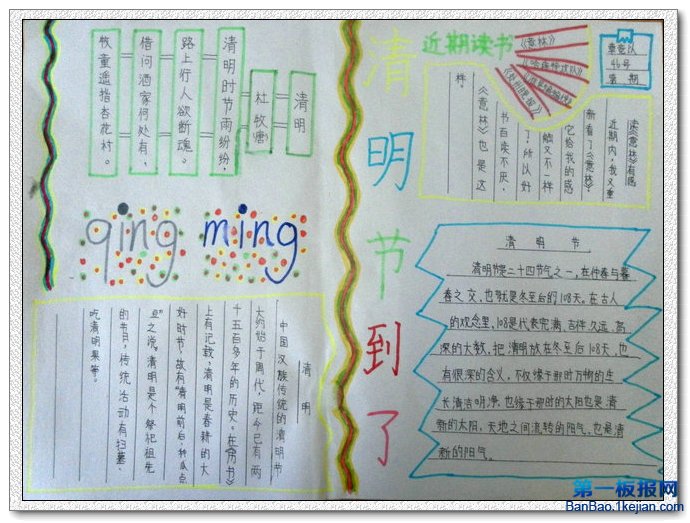 清明
杜牧(唐)
清明时节雨纷纷，
路上行人欲断魂。
借问酒家何处有，
牧童遥指杏花村。
qing ming
清明
中国汉族传统的清明节
大约始于周代，距今已有两
千五百多年的历史。在《历书》
上有记载：清明是春耕的大
好时节，故有“清明前后，种瓜点
豆”之说。清明是个祭祀祖先
的节日，传统活动有扫墓、
吃清明果等。
清明节到了
近期读书
《意林》
章
46号
第 期
读《意林》有感
近期内，我又重
新看了《意林》
它给我的感
触又不一样
了！所以好
书百读不厌，
《意林》也是这
样
清明节
清明节是二十四节气之一，在仲春与暮
春之交，也就是冬至后的108天。在古人
的观念里，108是代表完满、吉祥、久远、高
深的大数，把清明放在冬至后108天，也
有很深的含义，不仅缘于那时万物的生
长清洁明净，也缘于那时的太阳也是清
新的太阳，天地之间流转的阳气，也是清
新的阳气。
第一板报网
BanBao.1kejian.com